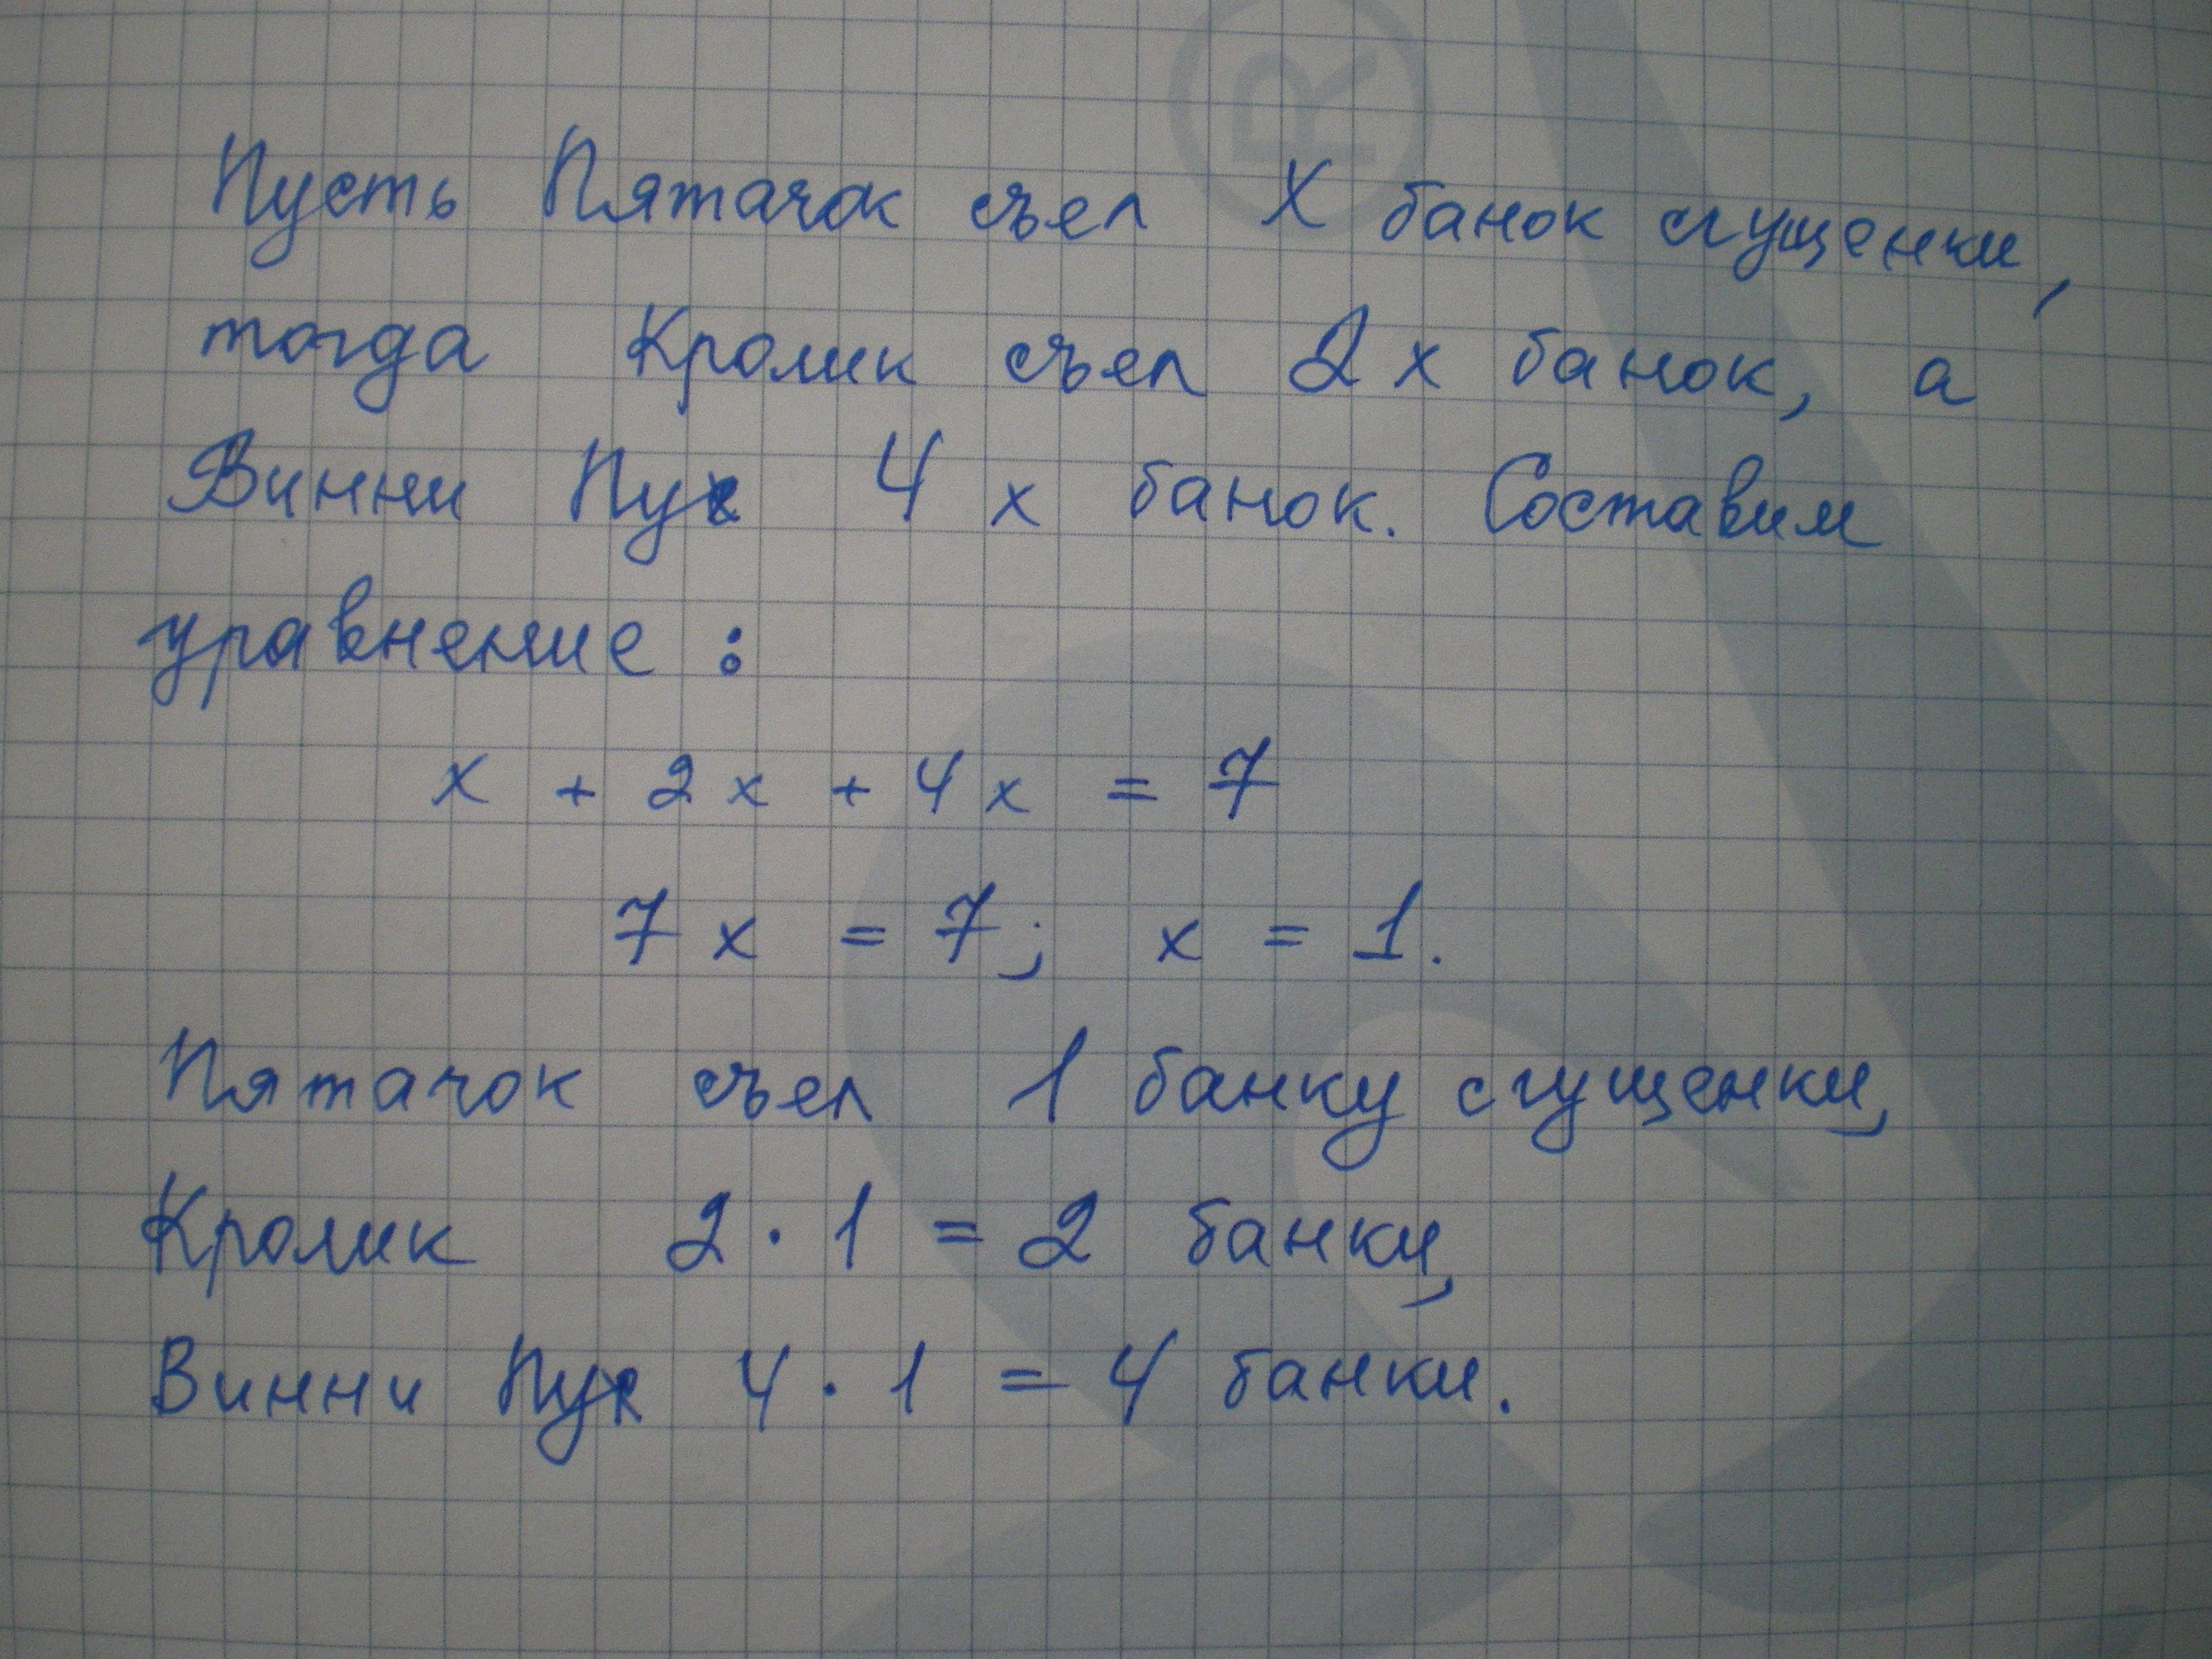 Пусть Пятачок съел X банок сгущенки,
тогда Кролик съел 2x банок, а
Винни Пух 4x банок. Составим
уравнение:
x + 2x + 4x = 7
7x = 7; x = 1.
Пятачок съел 1 банку сгущенки,
Кролик 2 · 1 = 2 банки,
Винни Пух 4 · 1 = 4 банки.